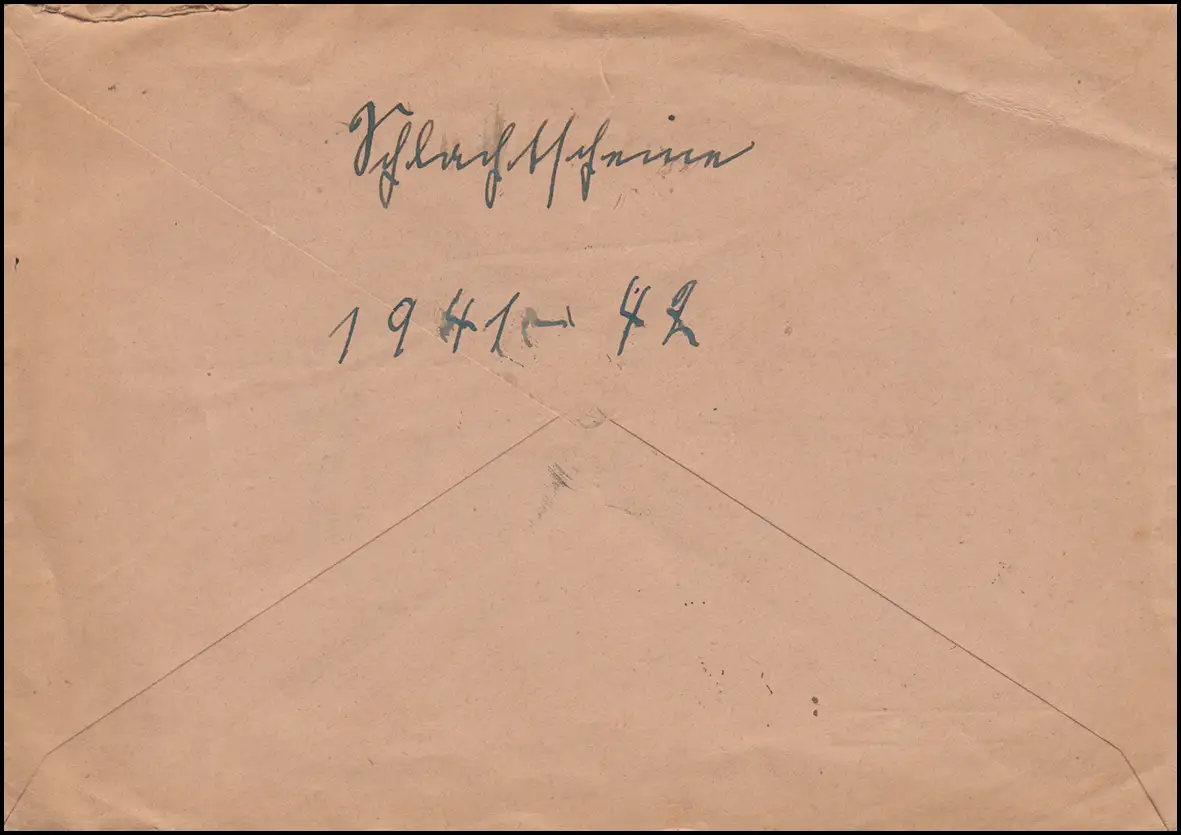 Schlachtscheine
1941 - 42